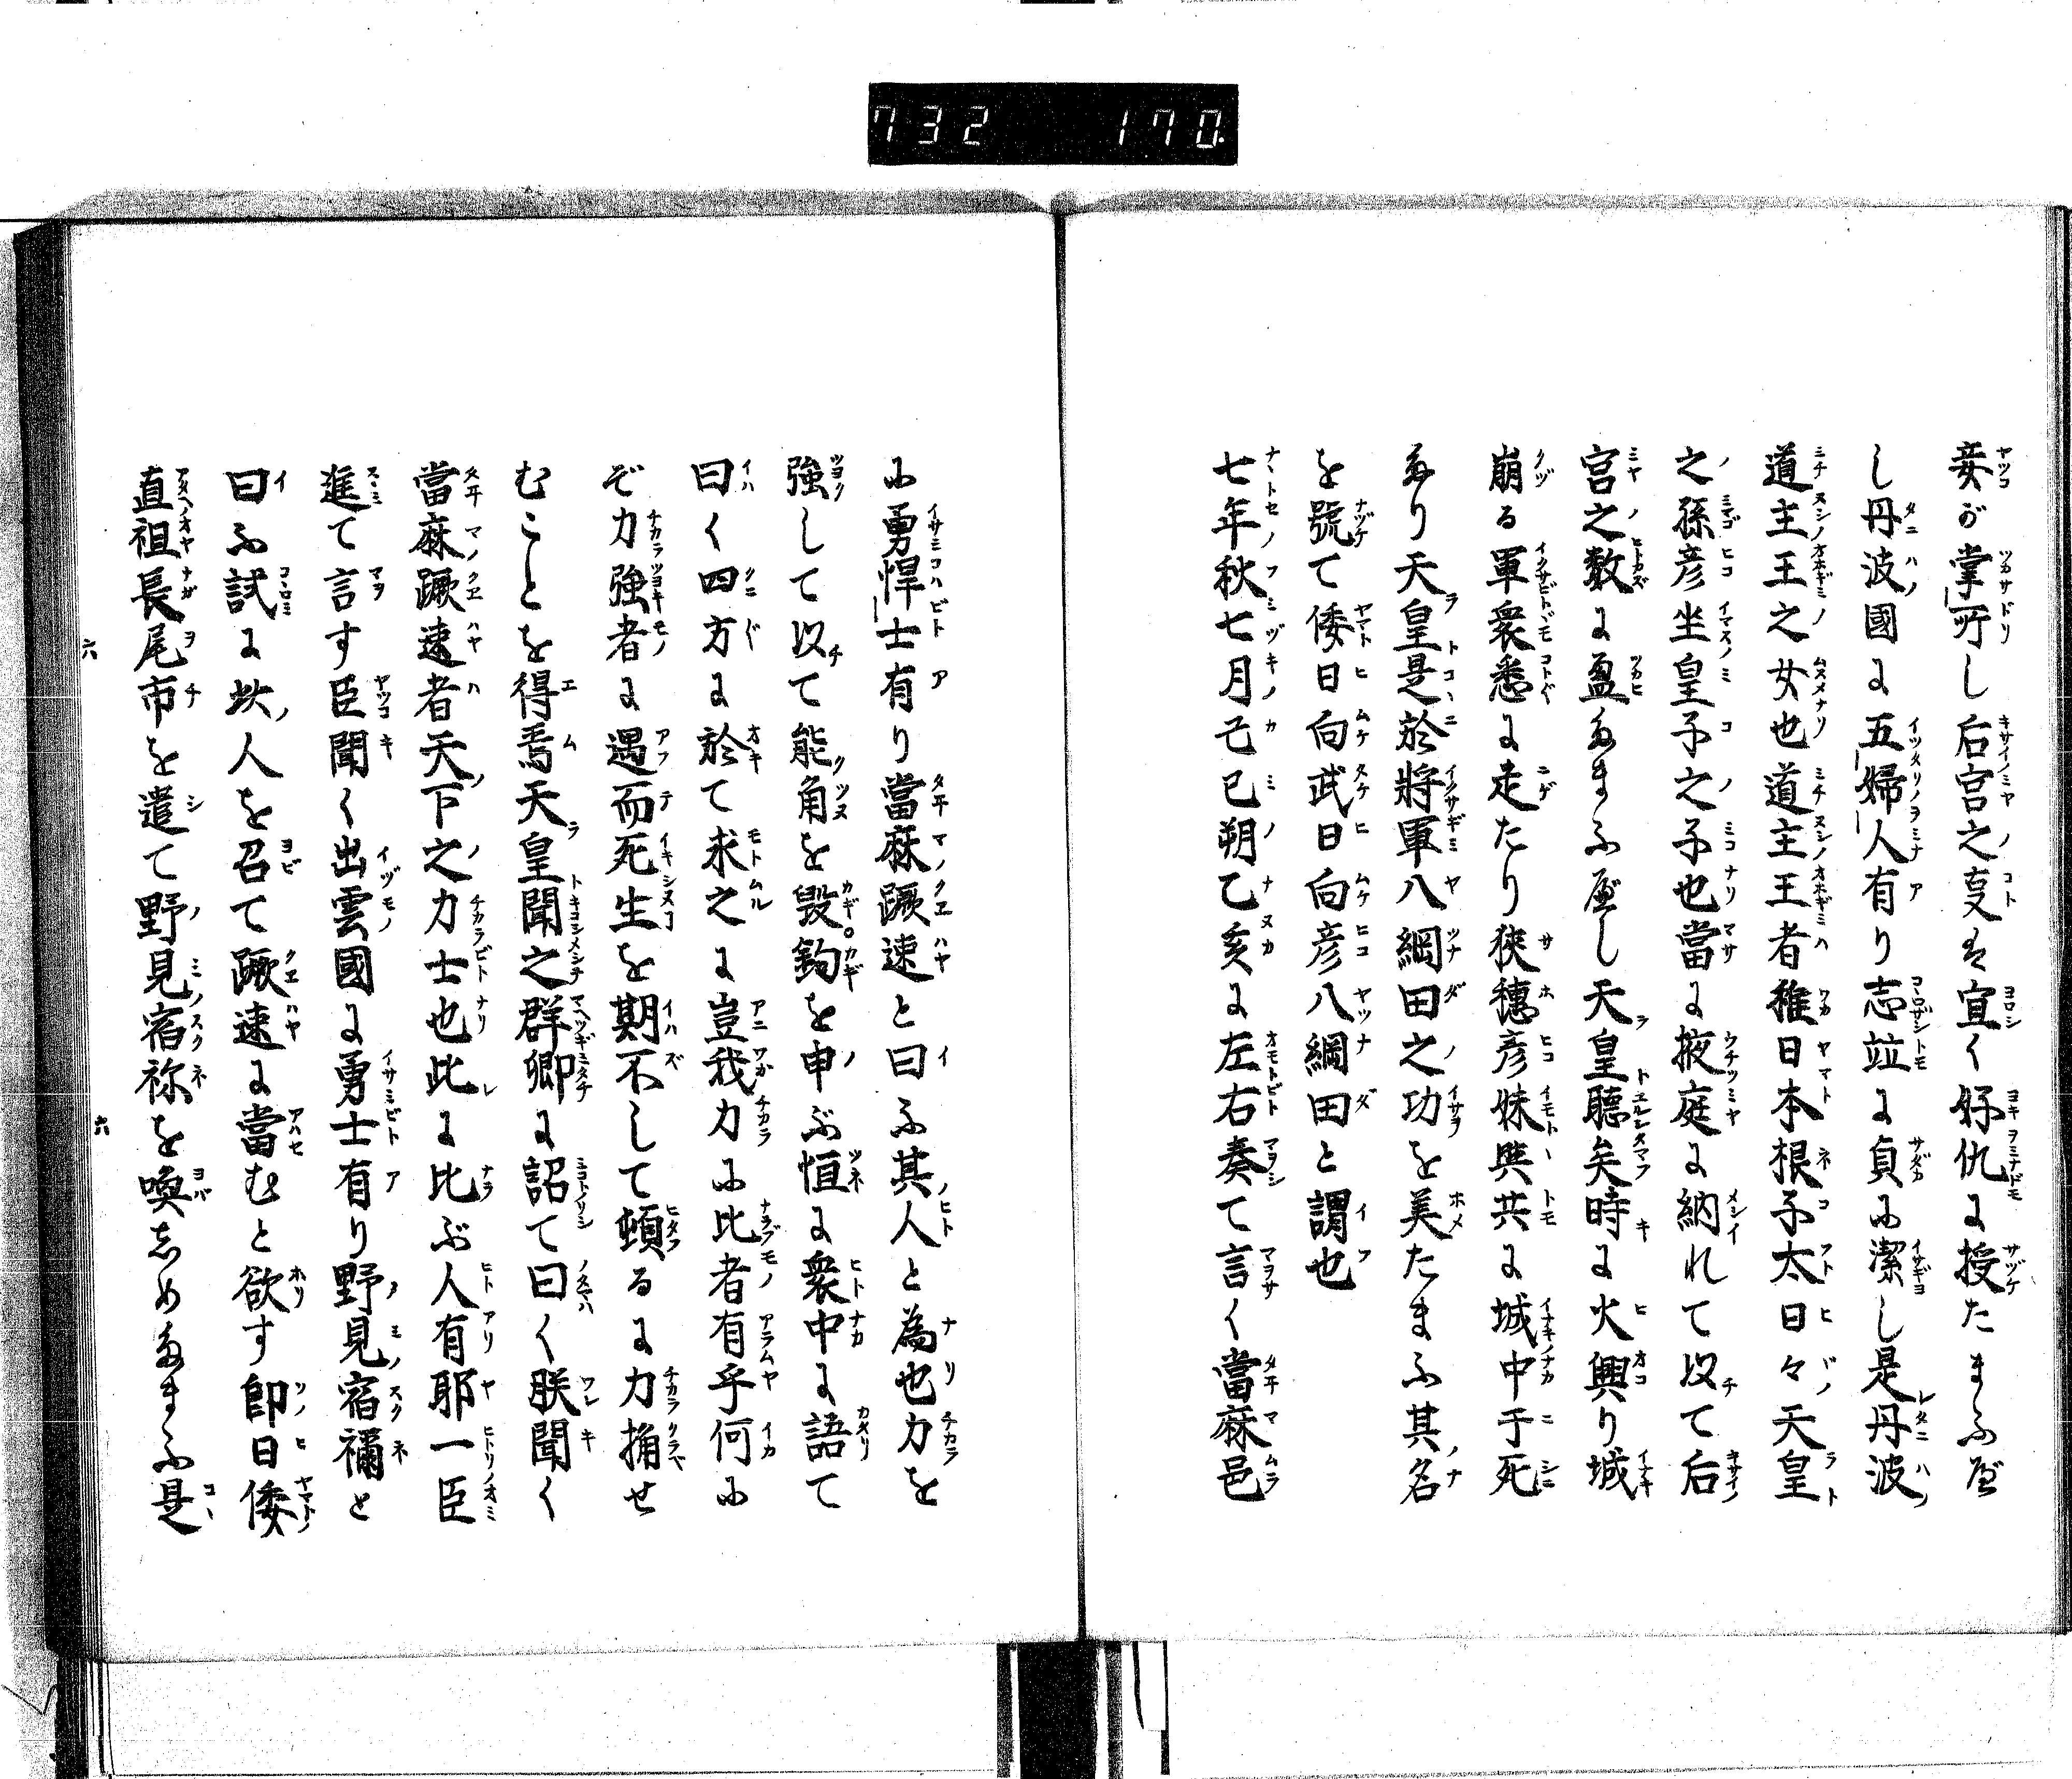 732 170
妾が掌所し后宮之事は宜く好仇に授たまふ屋
し丹波國に五婦人有り志竝に貞に潔し是丹波
道主王之女也道主王者稚日本根子太日々天皇
之孫彦坐皇子之子也當に掖庭に納れて以て后
宮之数に盈たまふ屋し天皇聴矣時に火興り城
崩る軍衆悉に走たり狹穗彦妹與共に城中于死
たり天皇是於將軍八綱田之功を美たまふ其名
を號て倭日向武日向彦八綱田と謂也
七年秋七月己巳朔乙亥に左右奏て言く當麻邑
に勇悍士有り當麻蹶速と曰ふ其人と為也力を
強して以て能角を毀鉤を申ぶ恒に衆中に語て
曰く四方に於て求之に豈我力に比者有乎何に
ぞ力強者に遇而死生を期不して頓るに力捔せ
むことを得焉天皇聞之群卿に詔て曰く朕聞く
當麻蹶速者天下之力士也此に比ぶ人有耶一臣
進て言す臣聞く出雲國に勇士有り野見宿禰と
曰ふ試に此人を召て蹶速に當むと欲す即日倭
直祖長尾市を遣て野見宿祢を喚志めたまふ是